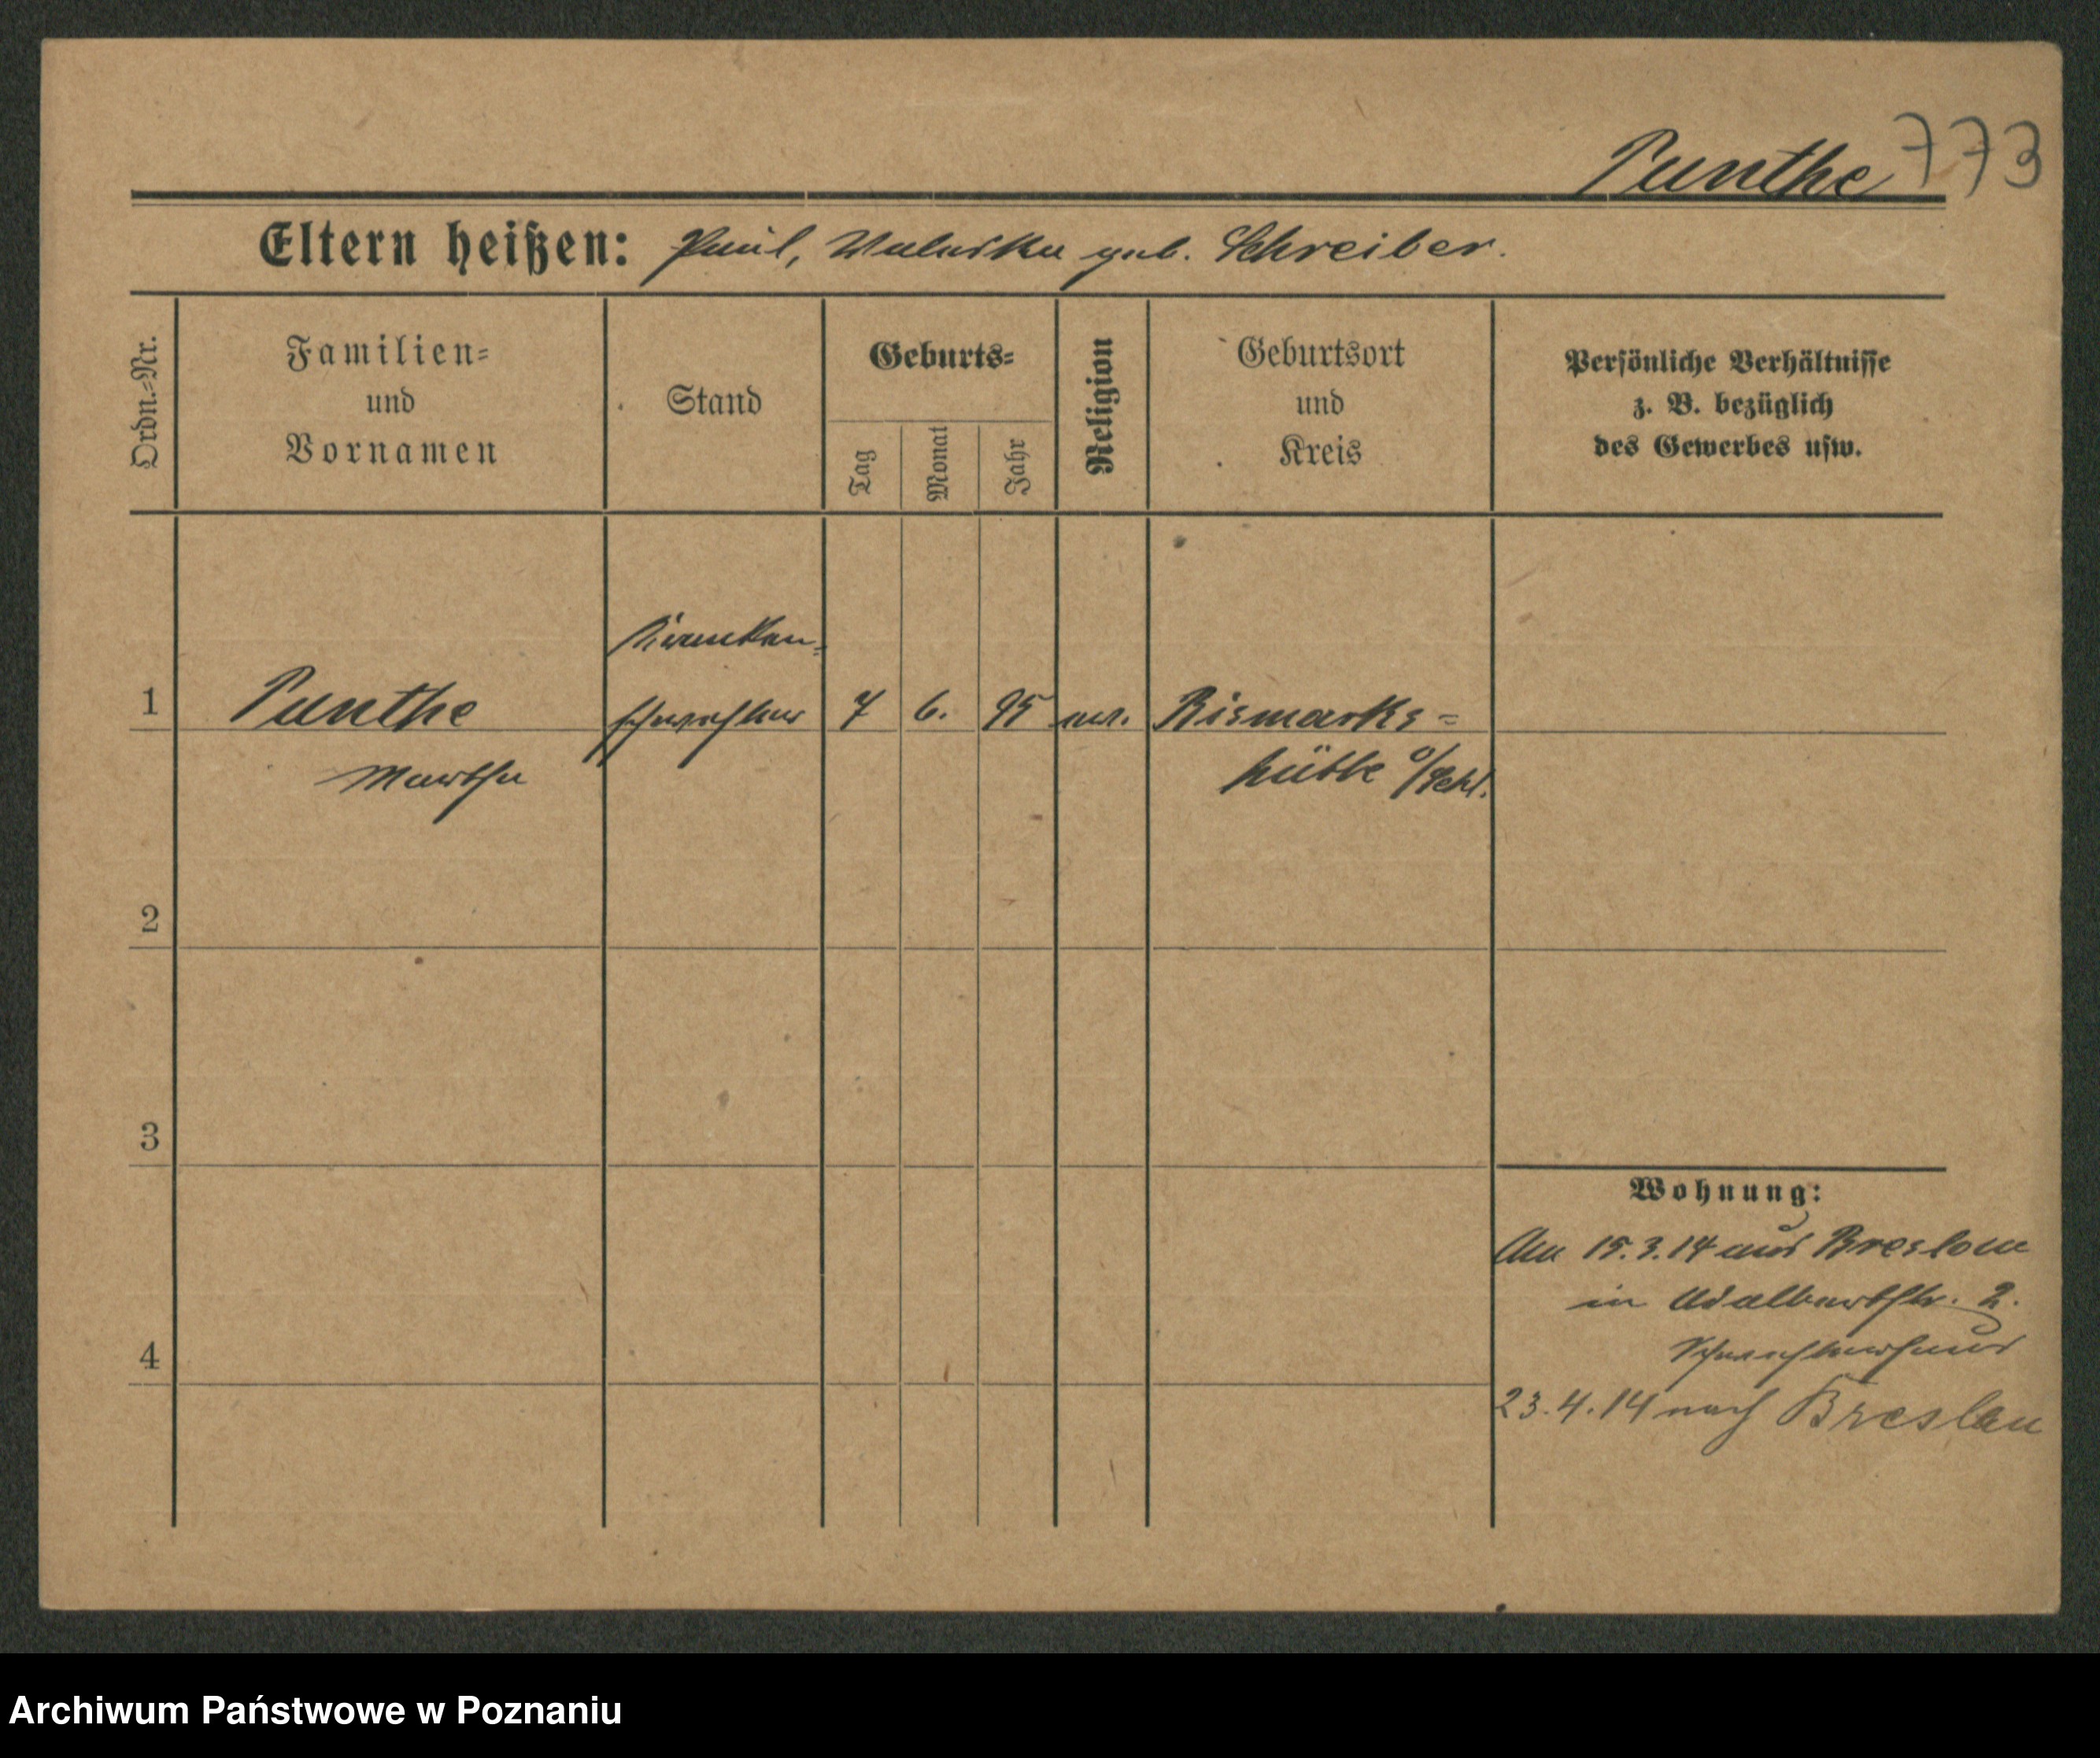 Punthe 773
Eltern heißen: Paul, Valeska geb. Schreiber.
Ordn.=Nr.
Familien=
und
Vornamen
Stand
Geburts=
Tag
Monat
Jahr
Religion
Geburtsort
und
Kreis
Persönliche Verhältnisse
z. B. bezüglich
des Gewerbes usw.
Kranken=
1 Punthe schwester 7 6. 95 ev. Bismarks=
Martha hütte O/Schl.
2
3
Wohnung:
Am 15.3.14 aus Breslau
in Adalbertstr. 2.
Schwesternhaus
4
23.4.14 nach Breslau
Archiwum Państwowe w Poznaniu